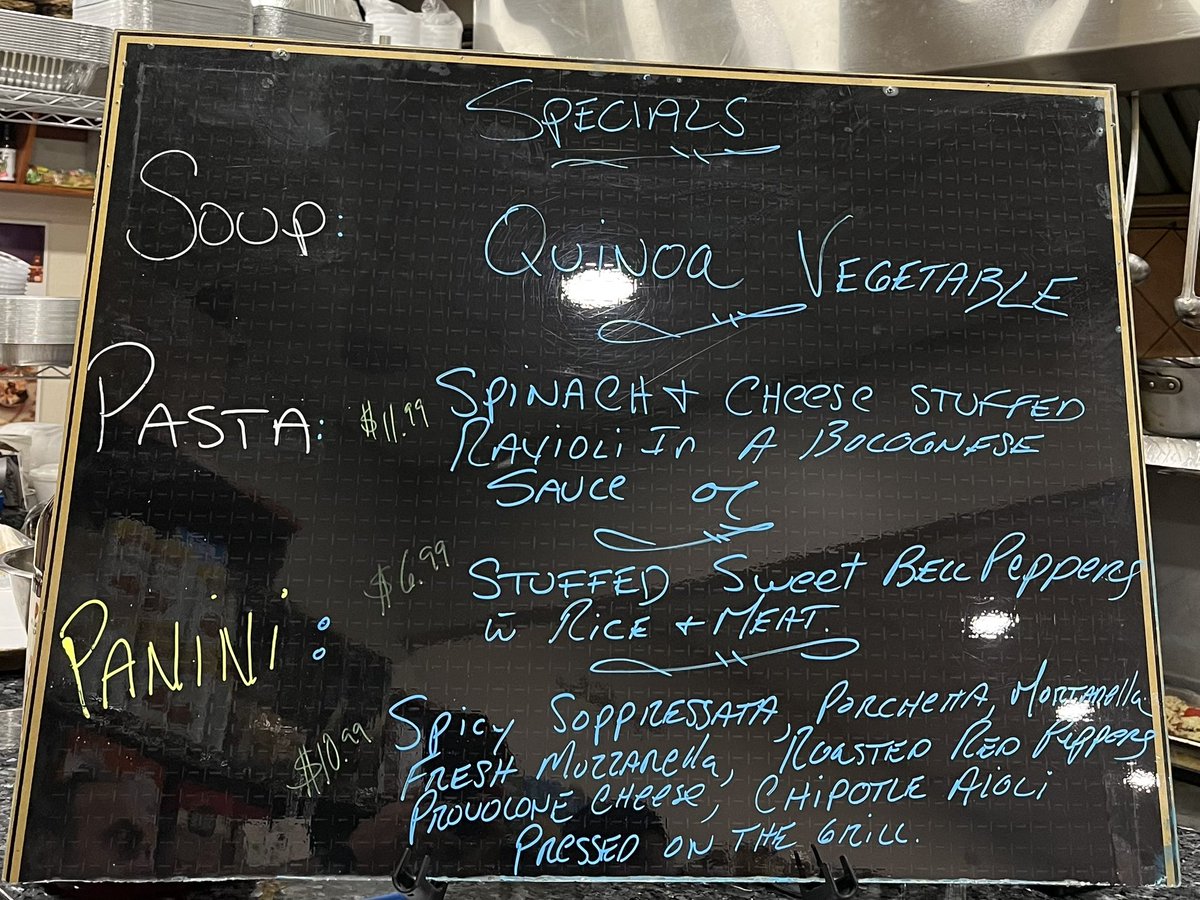 SPECIALS
SOUP: QUINOA VEGETABLE
PASTA: $11.99 SPINACH + CHEESE STUFFED
RAVIOLI In A BOLOGNESE
SAUCE or
$6.99 STUFFED Sweet BELL Peppers
w RICE + MEAT.
PANINI:
$10.99 Spicy SOPPRESSATA, PORCHETTA, MORTADella
FRESH MOZZARella, ROASTED RED Peppers
PROVOLONE CHEESE, CHIPOTLE AIOLI
PRESSED ON THE GRILL.